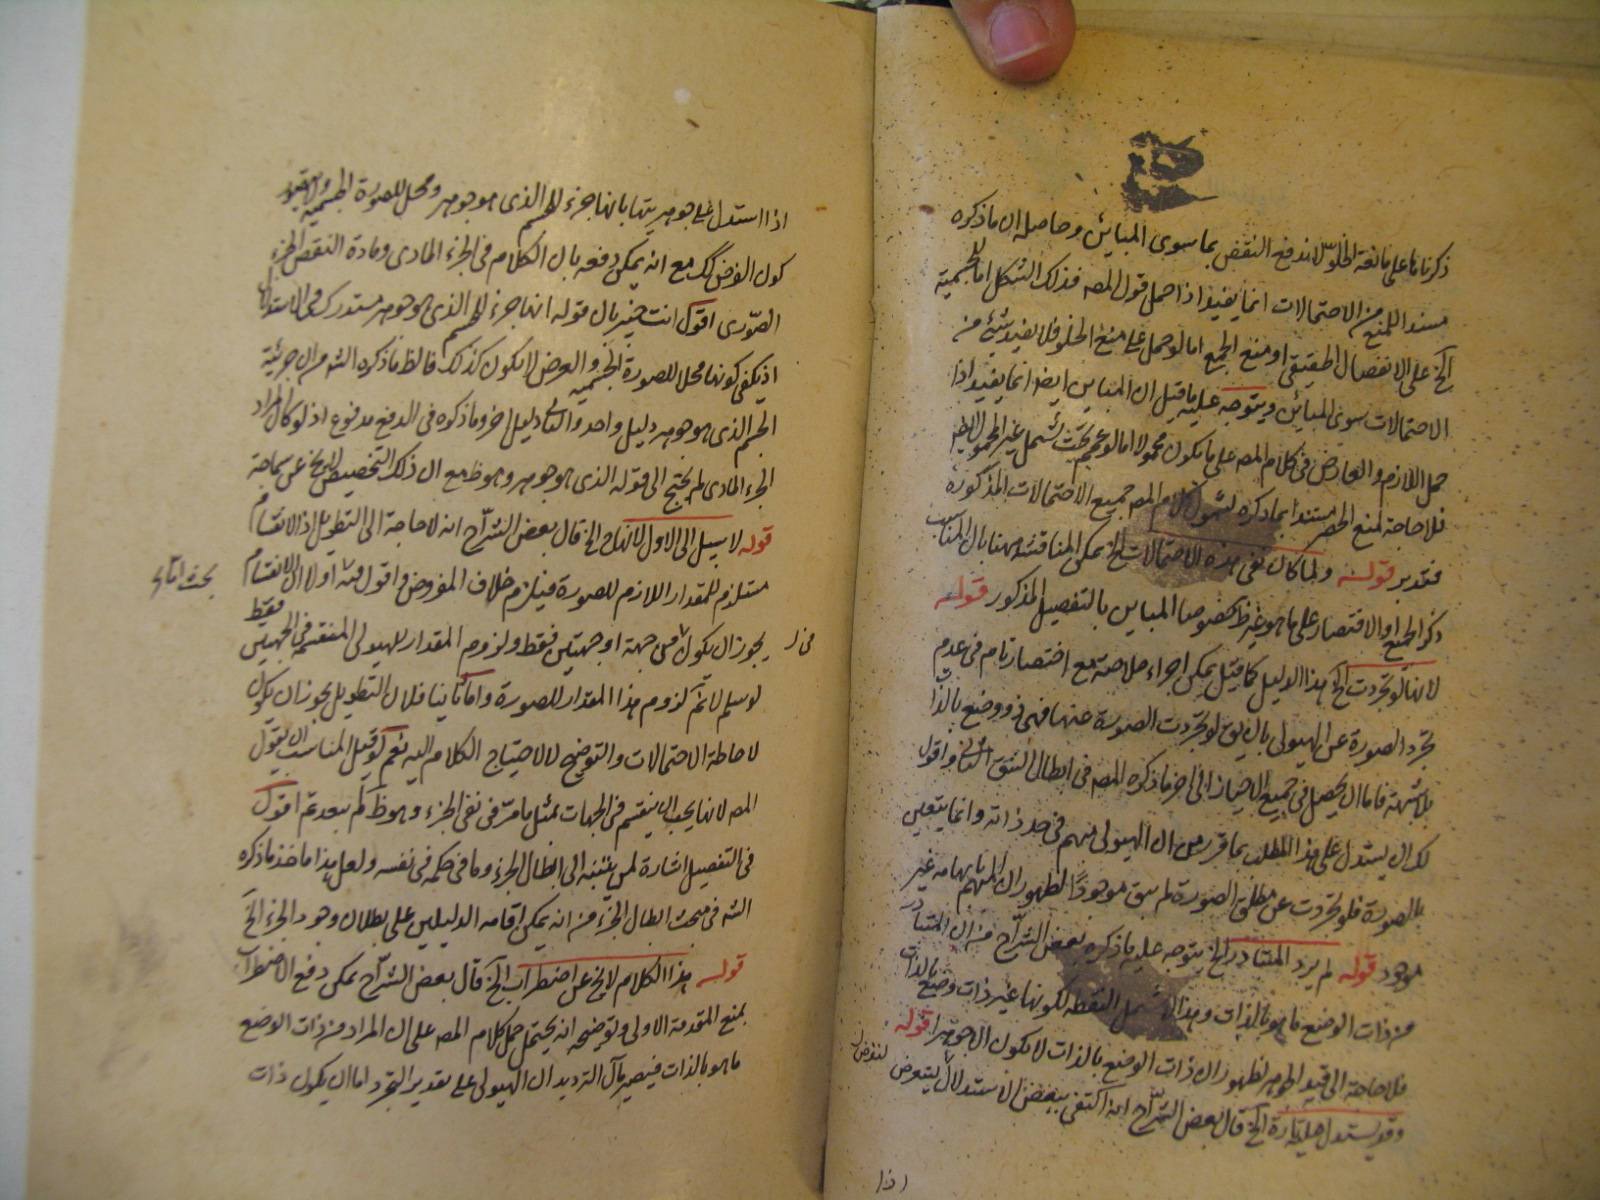 ذكرنا ما على مانعة الخلو لاندفع النقض بما سوى المباين وحاصله ان ما ذكره
مسندا للمنع من الاحتمالات انما يفيد اذا حمل قول المصه فذلك الشكل اما للجسمية
الخ على الانفصال الحقيقي او منع الجمع اما لو حمل على منع الخلو فلا يفيد شيئ من
الاحتمالات سوى المباين ويتوجه عليه ما قيل ان المباين ايضا انما يفيد اذا
حمل اللازم والعارض في كلام المصه على ما يكون محمولا اما لو عمم بحيث يشمل غير المحمول ايضا
فلا حاجة لمنع الحصر مستندا بما ذكره لشمول كلام المصه جميع الاحتمالات المذكورة
فتدبر قوله ولما كان نفى هذه الاحتمالات الخ يمكن المناقشة ههنا بان المناسب
ذكر الجميع او الاقتصار على ما هو غير ظ خصوصا المباين بالتفصيل المذكور قوله
لانها لو تجردت الخ هذا الدليل كما قيل يمكن اجراء خلاصته مع اختصار تام في عدم
تجرد الصورة عن الهيولى بان يق لو تجردت الصورة عنها فهى ذو وضع بالذات
بلا شبهة فاما ان يحصل في جميع الاحياز الى اخر ما ذكره المصه في ابطال الشق الثاني واقول
لك ان يستدل على هذا المطلب بما قرر من ان الهيولى مبهم في حد ذاته وانما يتعين
بالصورة فلو تجردت عن مطلق الصورة لم يبق موجودًا لظهور ان المبهم بابهامه غير
موجود قوله لم يرد المتبادر الخ يتوجه عليه ما ذكره بعض الشراح من ان المتبادر
من ذات الوضع ما هو بالذات وهذا لا يشمل النقطة لكونها غير ذات وضع بالذات
فلا حاجة الى قيد الجوهر لظهور ان ذات الوضع بالذات لا يكون الا جوهرا قوله
وقد يستدل عليه تارة الخ قال بعض الشراح انه اكتفى ببعض الاستدلال ليتعرض
اذا
اذا استدل على جوهريتها بانها جزء للجسم الذى هو جوهر ومحل للصورة الجسمية
كون الفرض كك مع انه يمكن دفعه بان الكلام في الجزء المادى ومادة النقض الجزء
الصورى اقول انت خبير بان قوله انها جزء للجسم الذى هو جوهر مستدرك في الاستدلال
اذ يكفى كونها محلا للصورة الجسمية والعرض لا يكون كذلك فالظ ما ذكره الشه من ان جزئية
الجسم الذى هو جوهر دليل واحد والثاني دليل اخر وما ذكره في الدفع مدفوع اذ لو كان المراد
الجزء المادى لم يحتج الى قوله الذى هو جوهر وهو ظ مع ان ذلك التخصيص لا يخ عن سماجة
قوله لا سبيل الى الاول لانها ح الخ قال بعض الشراح انه لا حاجة الى التطويل اذ الانقسام
مستلزم للمقدار اللازم للصورة فيلزم خلاف المفروض واقول فيه اولا ان الانقسام
يجوز ان يكون من جهة او جهتين فقط ولزوم المقدار للهيولى المنقسمة في الجهتين فقط
لو سلم لا نم لزوم هذا المقدار للصورة واما ثانيا فلان التطويل يجوز ان يكون
لاحاطة الاحتمالات والتوضيح لا لاحتياج الكلام اليه نعم لو قيل المناسب ان يقول
المصه لانها يجب ان ينقسم في الجهات بمثل ما مر في نفى الجزء وهو ظ لم يبعد ثم اقول
في التفصيل اشارة لمن يتنبه الى ابطال الجزء وما في حكمه في نفسه ولعل هذا ماخذ ما ذكره
الشه في مبحث ابطال الجزء من انه يمكن اقامة الدليلين على بطلان وجود الجزء الخ
قوله هذا الكلام لا يخ عن اضطراب الخ قال بعض الشراح يمكن دفع الاضطراب
بمنع المقدمة الاولى وتوضيحه انه يحتمل حمل كلام المصه على ان المراد من ذات الوضع
ما هو بالذات فيصير مآل الترديد ان الهيولى على تقدير التجرد اما ان يكون ذات